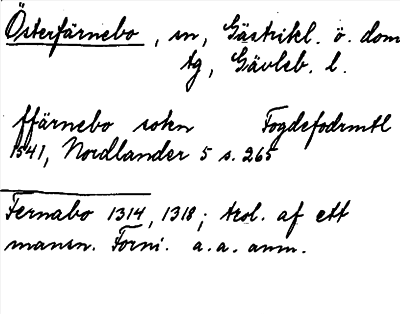 Österfärnebo, sn, Gästrikl. ö. dom
tg, Gävleb. l.
ffärnebo sokn Fogdefodrmtl
1541, Nordlander 5 s. 265
Fernabo 1314, 1318; trol. af ett
mansn. Forni. a. a. anm.